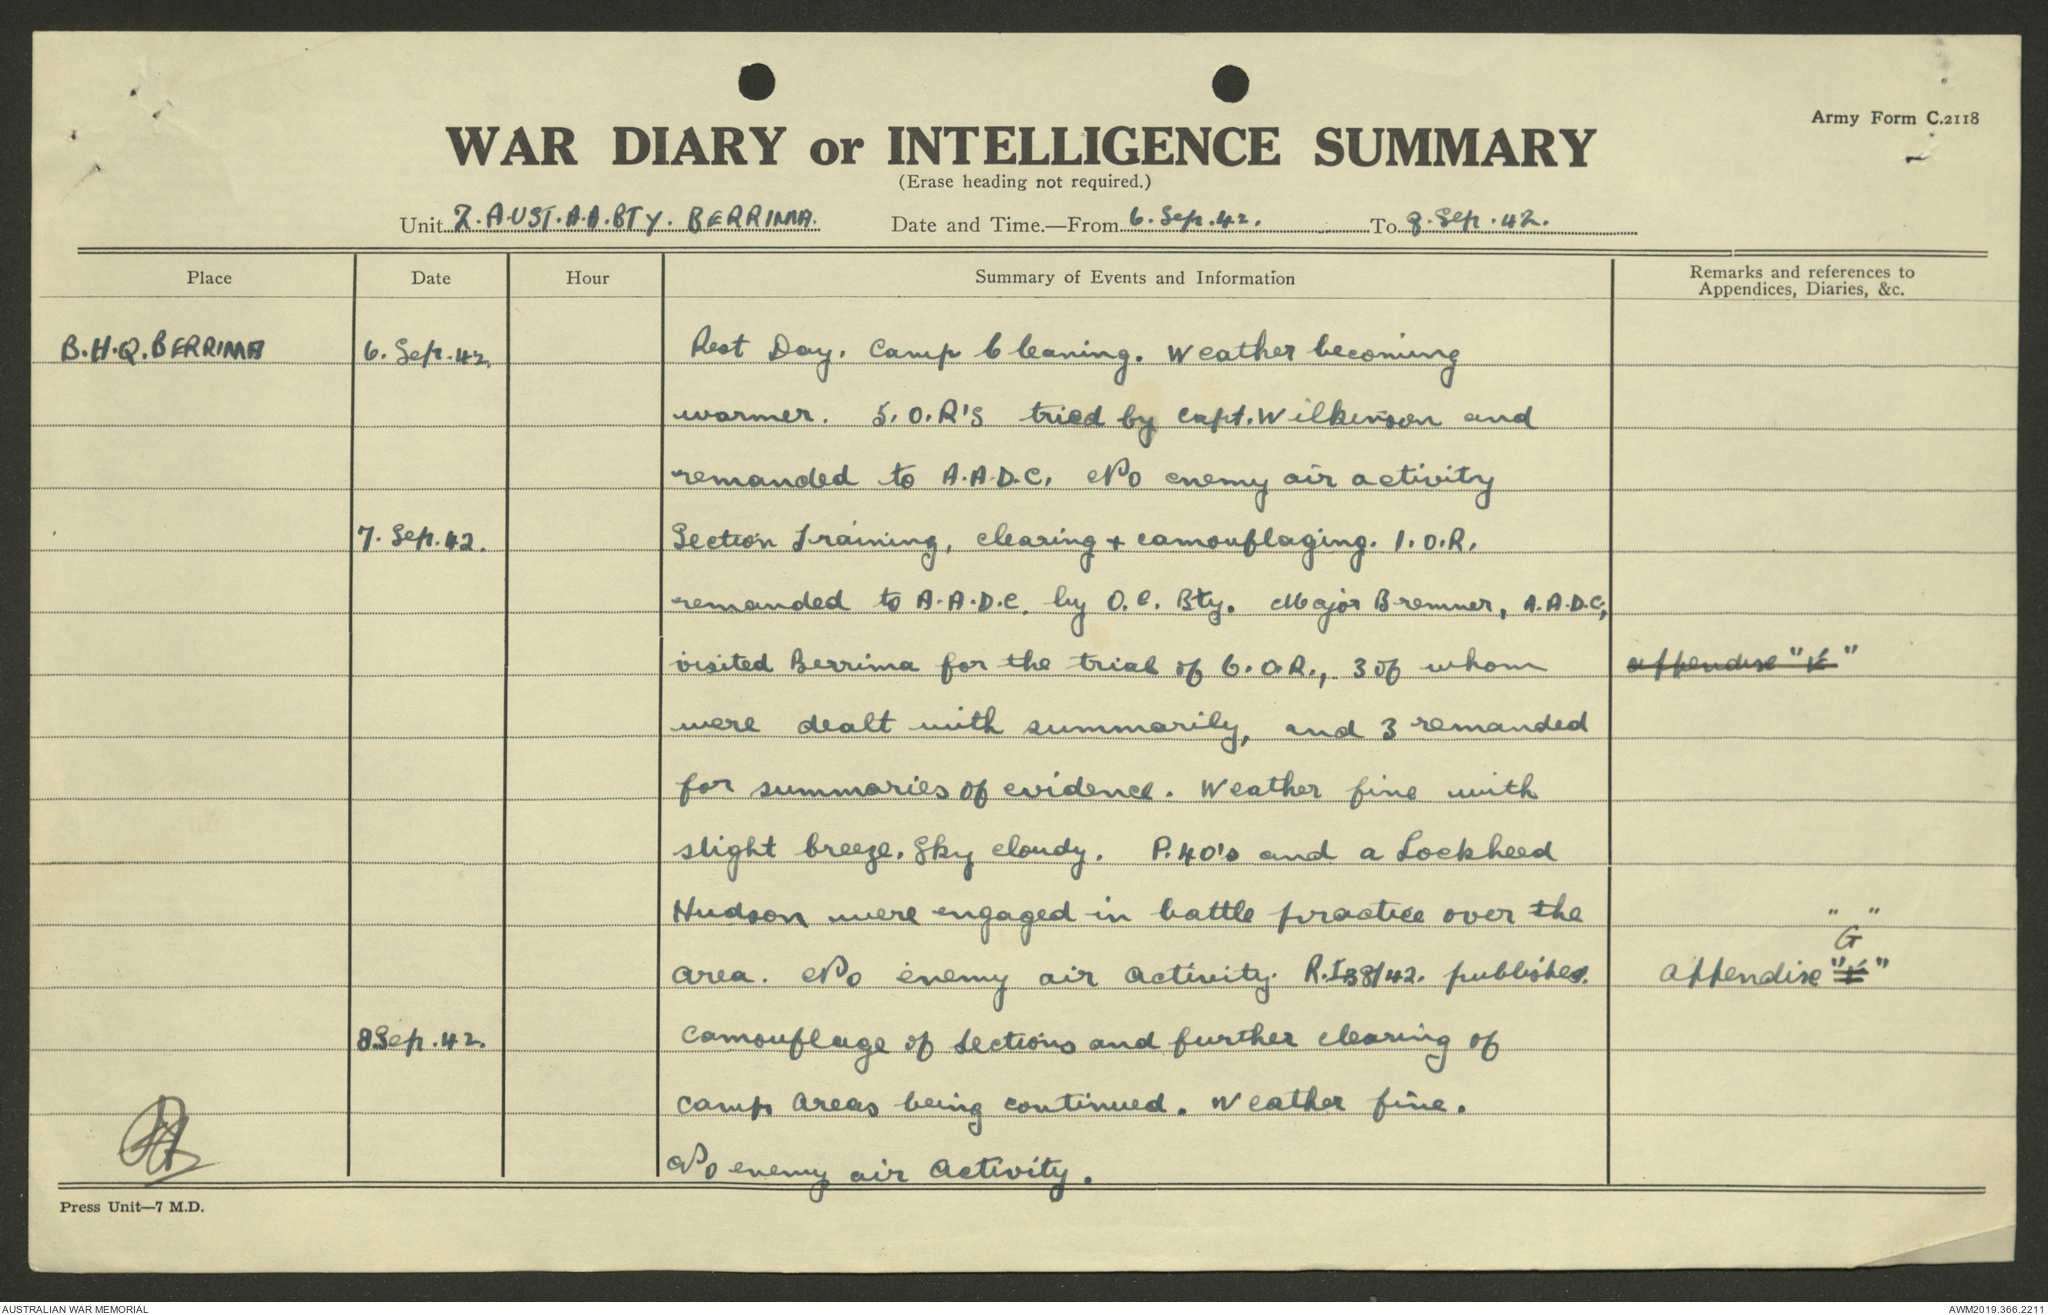 Army Form C.2118
WAR DIARY or INTELLIGENCE SUMMARY
(Erase heading not required.)
Unit 2.AUST.A.A.BTY. BERRIMA. Date and Time.—From 6.Sep.42. To 8.Sep.42.
Place Date Hour Summary of Events and Information Remarks and references to
Appendices, Diaries, &c.
B.H.Q.BERRIMA 6.Sep.42. Rest Day. Camp Cleaning. Weather becoming
warmer. 5.O.R's tried by Capt.Wilkinson and
remanded to A.A.D.C. No enemy air activity
7.Sep.42. Section Training, clearing + camouflaging. 1.O.R.
remanded to A.A.D.C. by O.C. Bty. Major Bremner, A.A.D.C,
visited Berrima for the trial of 6.O.R., 3 of whom appendix " "
were dealt with summarily, and 3 remanded
for summaries of evidence. Weather fine with
slight breeze. Sky cloudy. P.40's and a Lockheed
Hudson were engaged in battle practice over the
area. No enemy air activity. 38/42. published. appendix "G"
8Sep.42. Camouflage of Sections and further clearing of
camp areas being continued. Weather fine.
No enemy air activity.
Press Unit—7 M.D.
AUSTRALIAN WAR MEMORIAL AWM2019.366.2211